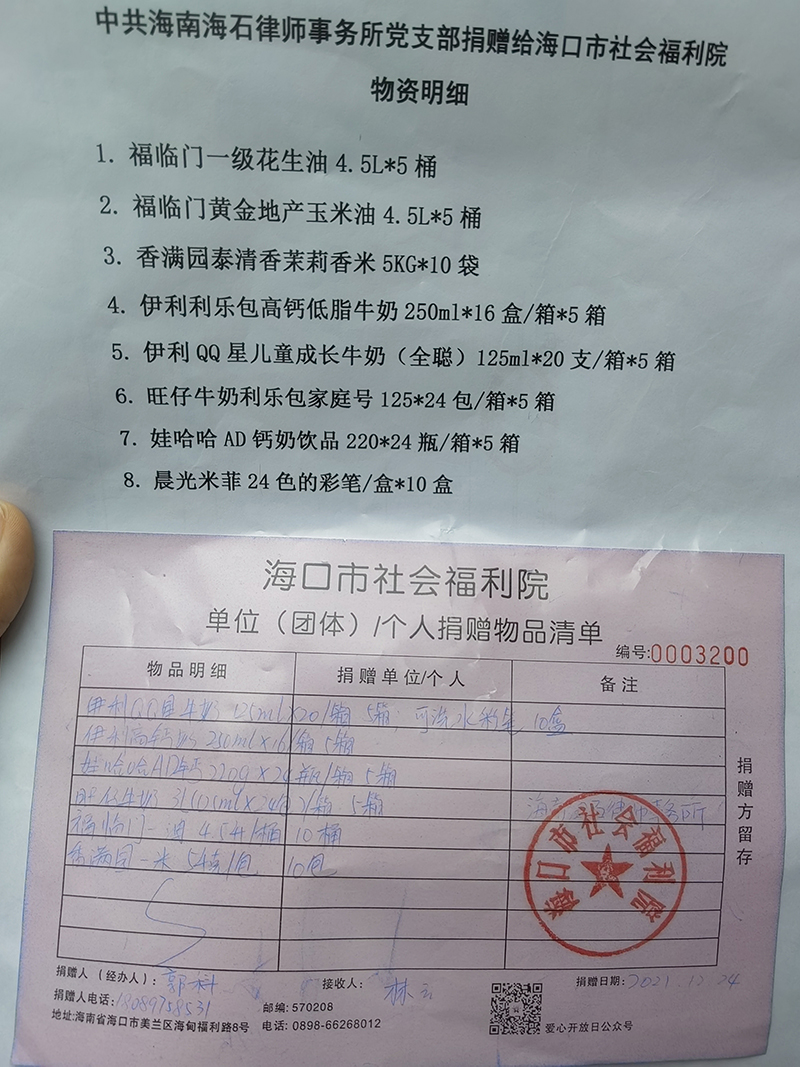 中共海南海石律师事务所党支部捐赠给海口市社会福利院
物资明细
1. 福临门一级花生油 4.5L*5 桶
2. 福临门黄金地产玉米油 4.5L*5 桶
3. 香满园泰清香茉莉香米 5KG*10 袋
4. 伊利利乐包高钙低脂牛奶 250ml*16 盒/箱*5 箱
5. 伊利 QQ 星儿童成长牛奶（全聪）125ml*20 支/箱*5 箱
6. 旺仔牛奶利乐包家庭号 125*24 包/箱*5 箱
7. 娃哈哈 AD 钙奶饮品 220*24 瓶/箱*5 箱
8. 晨光米菲 24 色的彩笔/盒*10 盒
海口市社会福利院
单位（团体）/个人捐赠物品清单
编号:0003200
物品明细 捐赠单位/个人 备注
伊利QQ星牛奶 125ml×20/箱 5箱; 可洗水彩笔 10盒
伊利高钙奶 250ml×16/箱 5箱
娃哈哈AD钙 220g×24瓶/箱 5箱
旺仔牛奶 /箱 5箱
福临门一油 4.5升/桶 10桶
香满园一米 /包 10包
海南 律师事务所
海口市社会福利院
捐赠方留存
捐赠人（经办人）: 郭科 接收人: 林 捐赠日期: 2021.12.24
捐赠人电话: 18089758531 邮编: 570208
地址:海南省海口市美兰区海甸福利路8号 电话: 0898-66268012 爱心开放日公众号